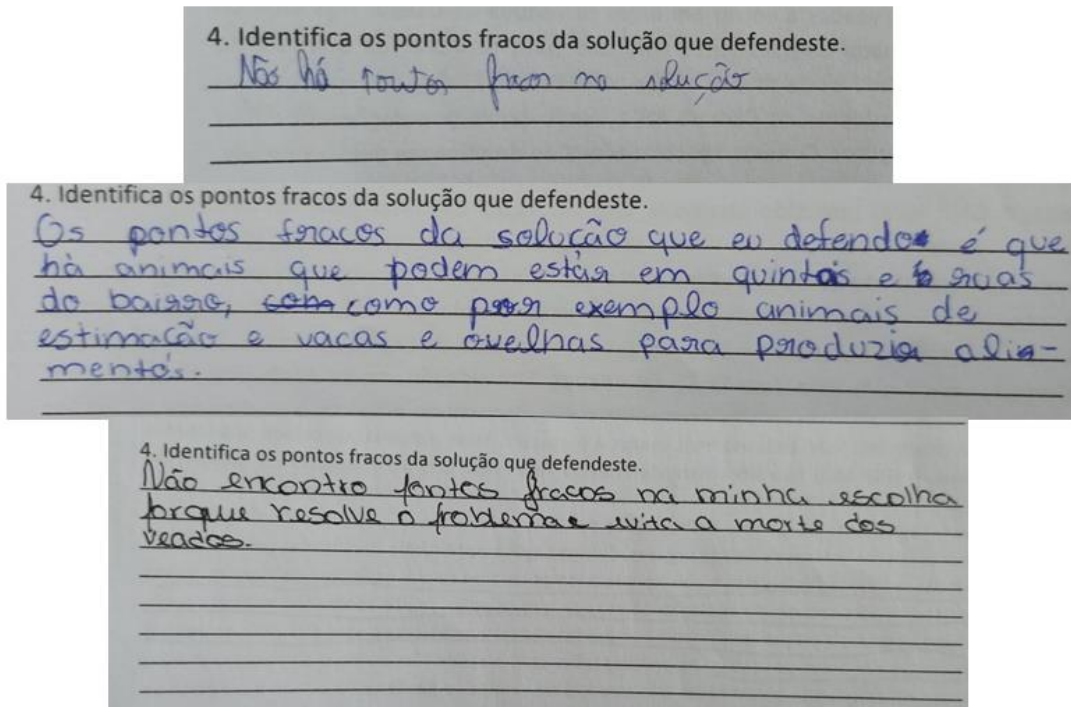 4. Identifica os pontos fracos da solução que defendeste.
Não há pontos fracos na solução
4. Identifica os pontos fracos da solução que defendeste.
Os pontos fracos da solução que eu defendo é que
há animais que podem estar em quintais e ruas
do bairro, com como por exemplo animais de
estimação e vacas e ovelhas para produzir ali-
mentos.
4. Identifica os pontos fracos da solução que defendeste.
Não encontro pontos fracos na minha escolha
porque resolve o problema e evita a morte dos
veados.